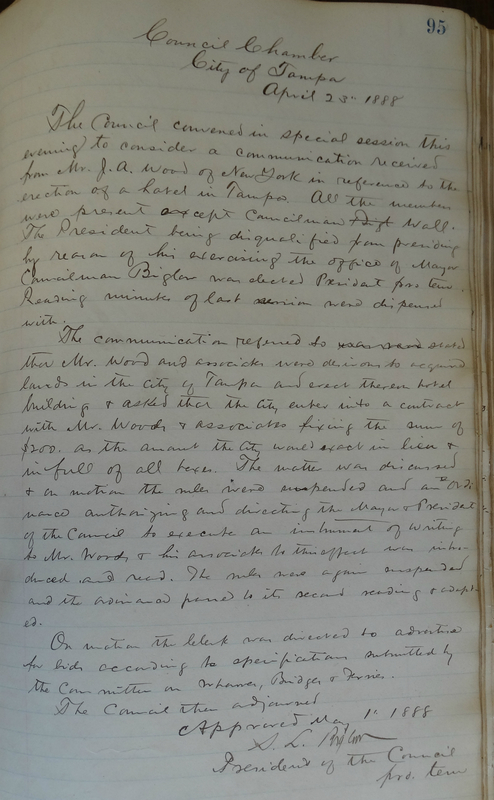 95
Council Chamber
City of Tampa
April 23" 1888
The Council convened in special session this
evening to consider a communication received
from Mr. J. A. Wood of New York in reference to the
erection of a hotel in Tampa. All the members
were present except Councilman Wall.
The President being disqualified from presiding
by reason of his exercising the office of Mayor
Councilman Biglow was elected President pro tem.
Reading minutes of last session were dispensed
with.
The communication referred to stated
that Mr. Wood and associates were desirous to acquire
lands in the City of Tampa and erect thereon hotel
building & asked that the City enter into a contract
with Mr. Woods & associates fixing the sum of
$200. as the amount the City would exact in lieu &
in full of all taxes. The matter was discussed
& on motion the rules were suspended and an Ordi-
nance authorizing and directing the Mayor & President
of the Council to execute an instrument of writing
to Mr. Woods & his associates to this effect was intro-
duced and read. The rules were again suspended
and the ordinance passed to its second reading & adopt-
ed.
On motion the Clerk was directed to advertise
for bids according to specifications submitted by
the Committee on Wharves, Bridges & Ferries.
The Council then adjourned
Approved May 1" 1888
S. L. Biglow
President of the Council
pro. tem